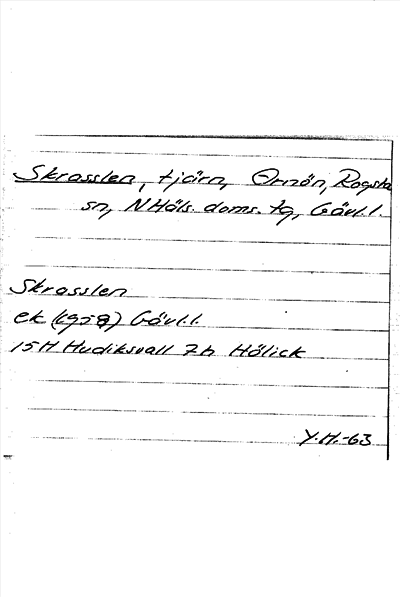 Skrasslen, tjärn, Ornön, Rogsta
sn, N Häls. doms. tg, Gävl.l.
Skrasslen
ek (1958) Gävl.l.
15H Hudiksvall 7h Hölick
Y.H.-63